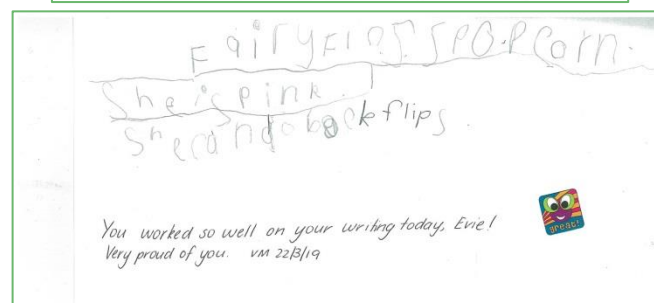 FairyFloss POPCorn.
She is pink.
She can do back flips.
You worked so well on your writing today, Evie!
Very proud of you. VM 22/3/19
great!